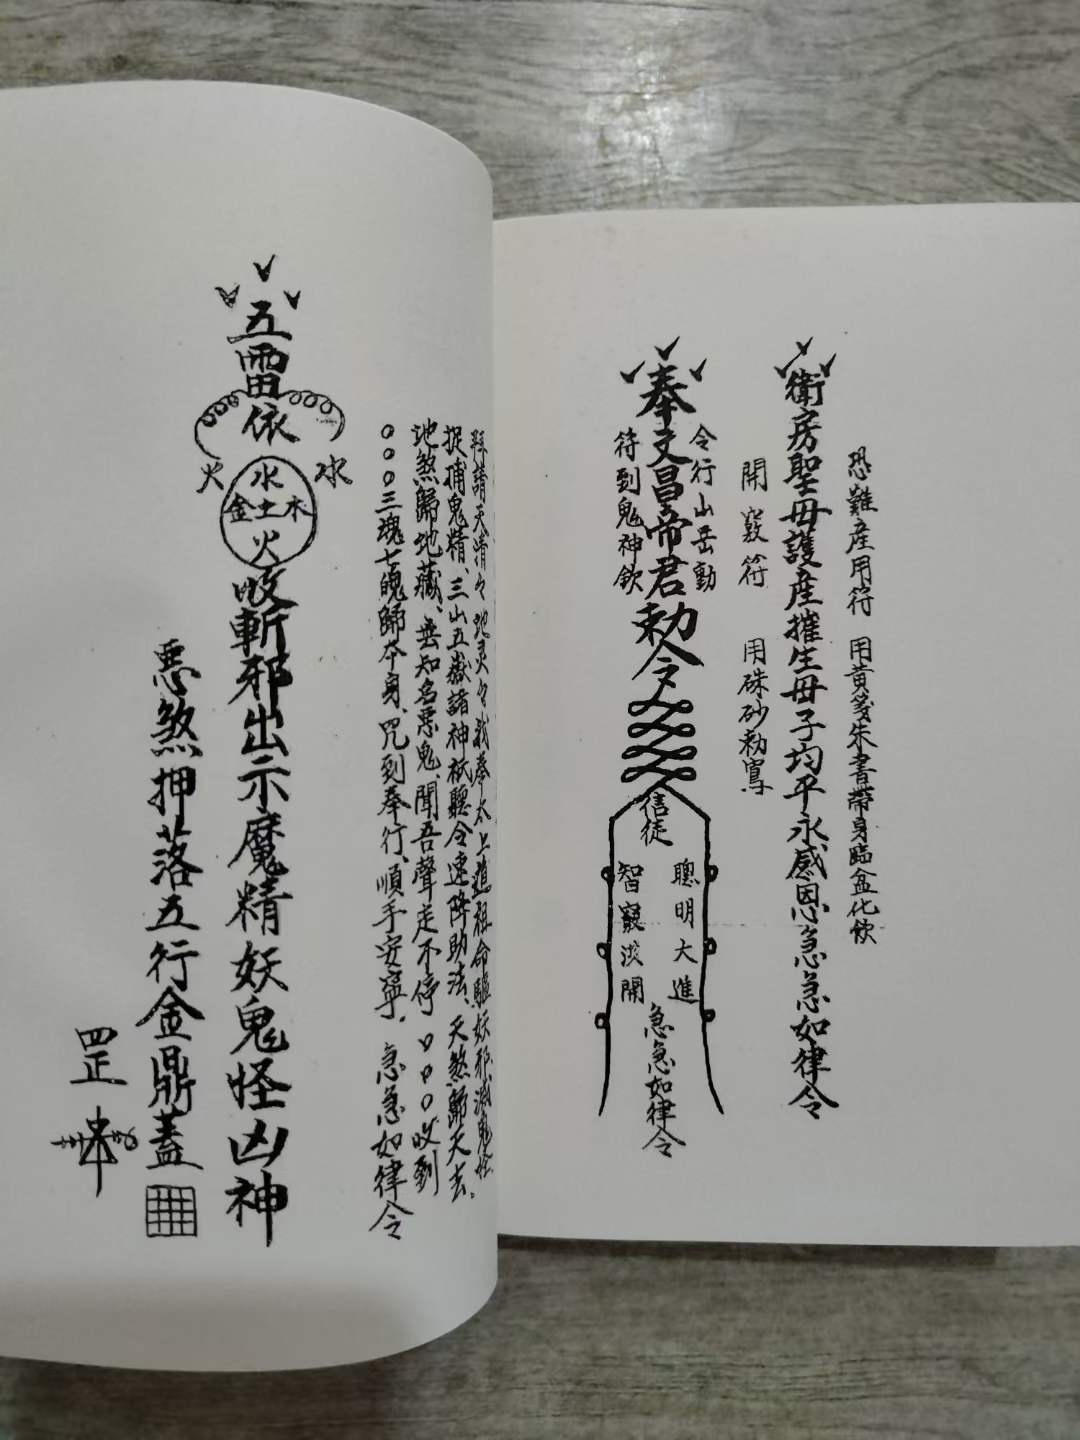 恐難産用符　用黄箋朱書帶身臨盆化飲
衛房聖母護産摧生母子均平永感恩急急如律令
開竅符　用硃砂勅寫
令行山岳動
奉文昌帝君勅令
符到鬼神欽
信徒
聰明大進
智竅淡開
急急如律令
拜請天清々地灵々我奉太上道祖命驅妖邪滅鬼怪
捉捕鬼精、三山五嶽諸神祇聽令速降助法、天煞歸天去。
地煞歸地藏、無知名惡鬼、聞吾聲走不停〇〇〇收到
〇〇〇三魂七魄歸本身、咒到奉行、順手安寧．急急如律令
五雷依
火 水
水
金土木
火
收斬邪出示魔精妖鬼怪凶神
惡煞押落五行金鼎蓋
罡